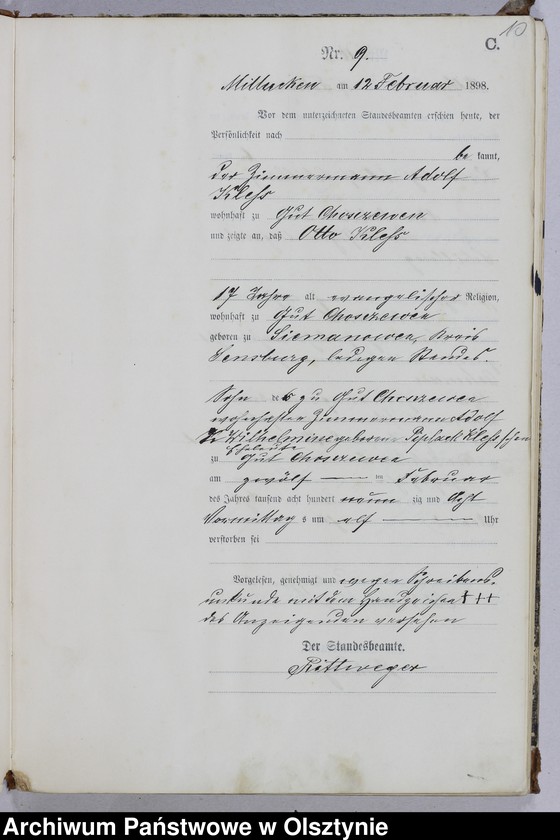 10
C.
Nr. 9.
Milucken am 12 Februar 1898.
Vor dem unterzeichneten Standesbeamten erschien heute, der
Persönlichkeit nach
be kannt,
der Zimmermann Adolf
Kless
wohnhaft zu Gut Choszewen
und zeigte an, daß Otto Kless
17 Jahre alt evangelischer Religion,
wohnhaft zu Gut Choszewen
geboren zu Siemanowen, Kreis
Sensburg, ledigen Standes.
Sohn des zu Gut Choszewen
wohnhaften Zimmermann Adolf
Wilhelmine geborene Kless schen
Eheleute
zu Gut Choszewen
am zwölf ten Februar
des Jahres tausend acht hundert neun zig und Acht
Vormittag s um elf Uhr
verstorben sei
Vorgelesen, genehmigt und wegen Schreibens-
unkunde mit dem Handzeichen +++
des Anzeigenden versehen
Der Standesbeamte.
Rittweger
Archiwum Państwowe w Olsztynie